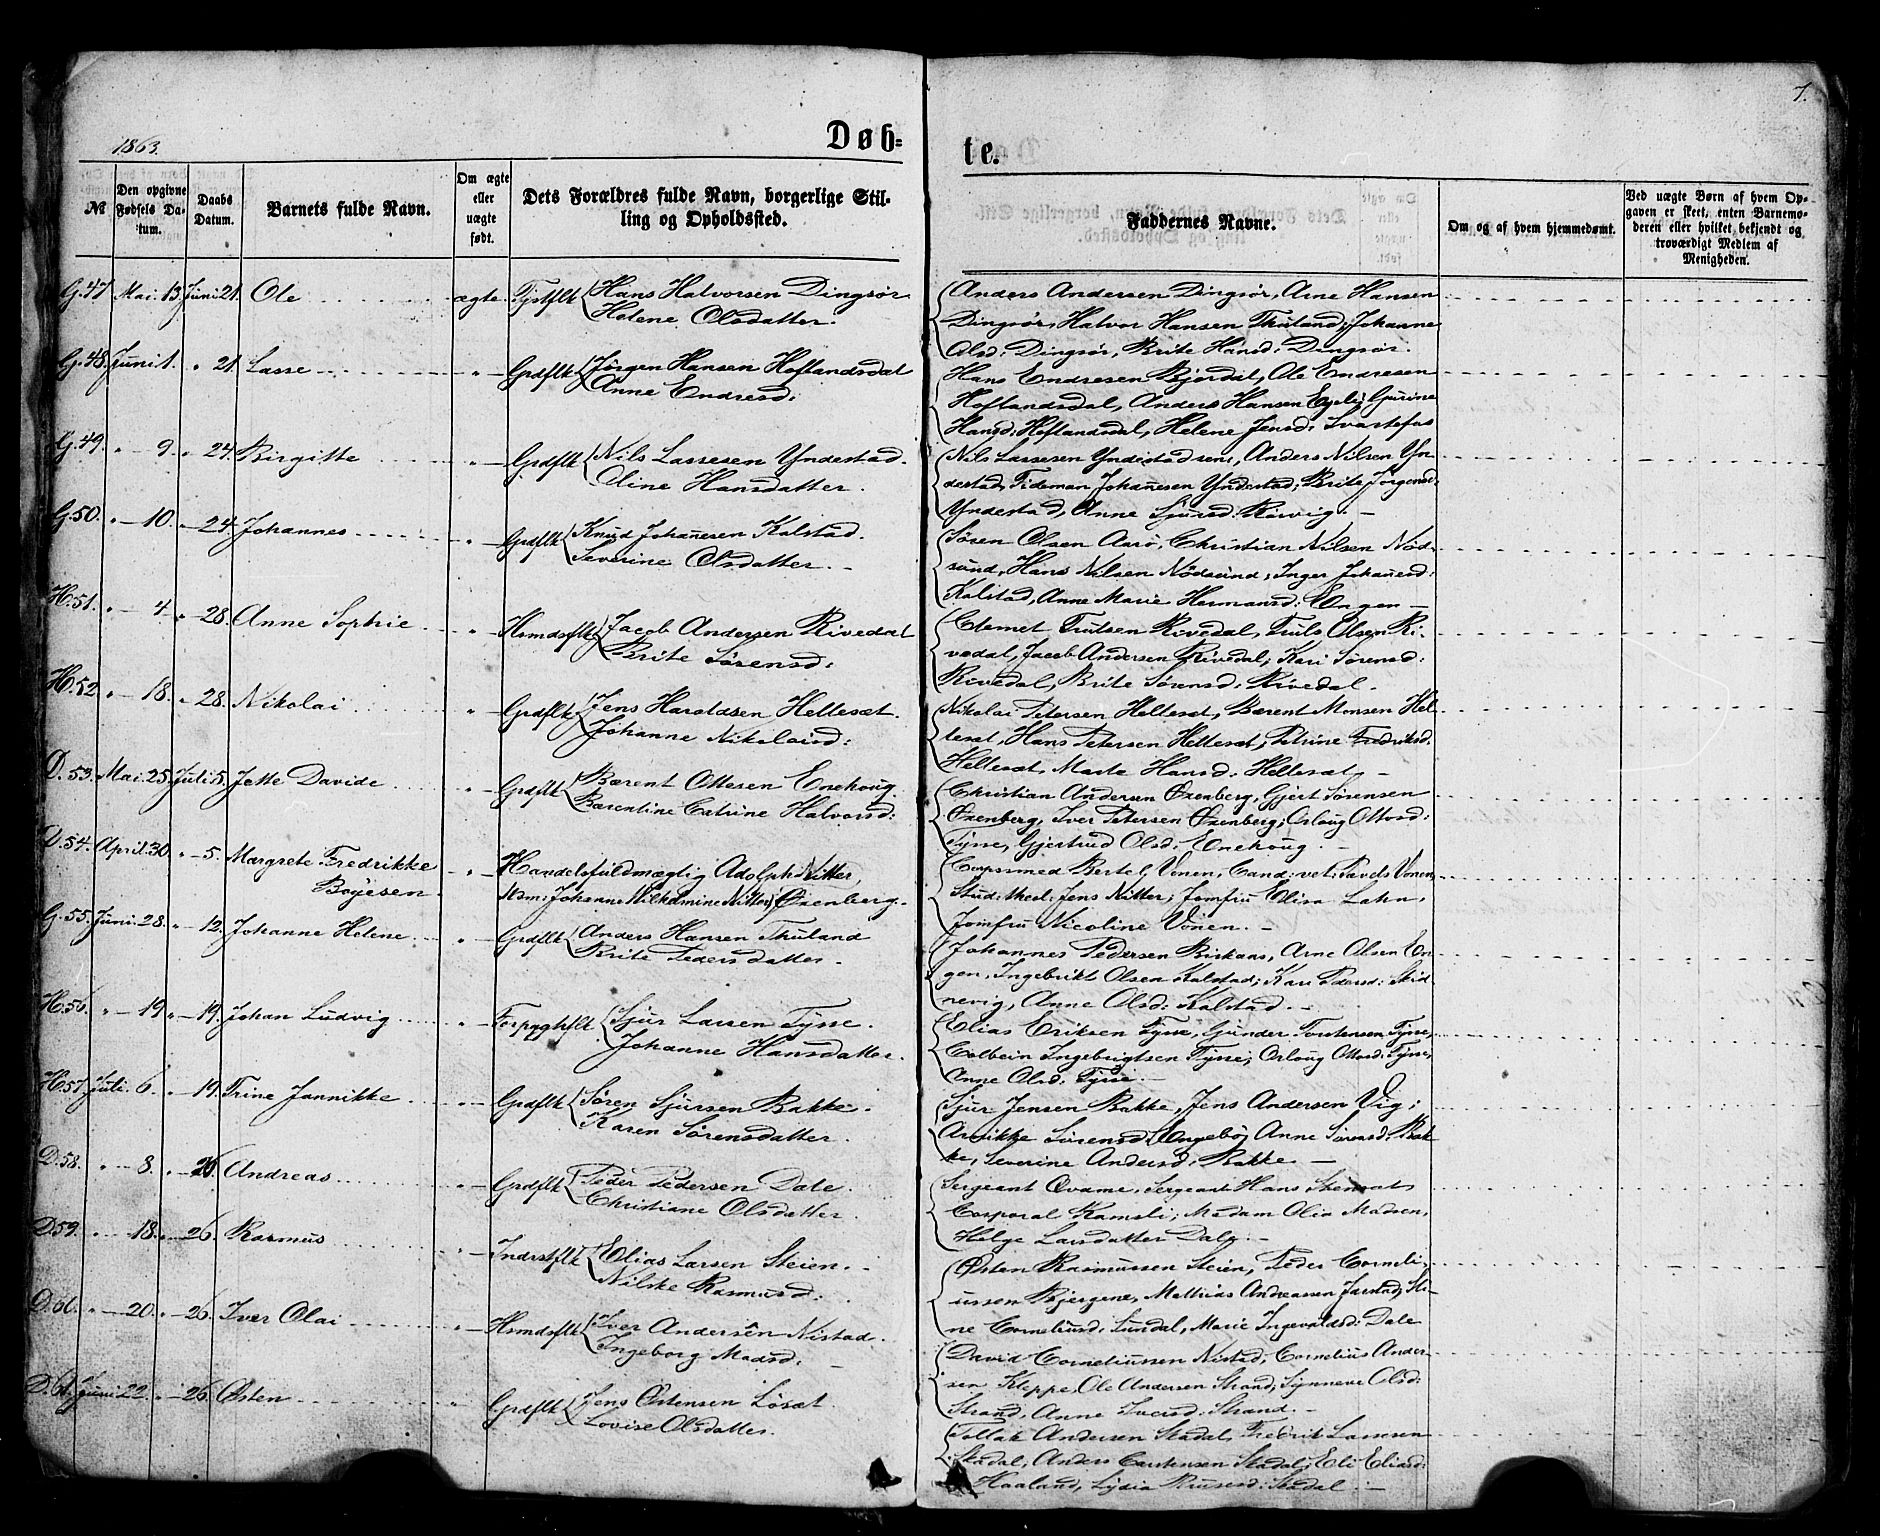 1863.
Døb=
te.
7.
№
Den opgivne Fødsels Da-
tum.
Daabs
Datum.
Barnets fulde Navn.
Om ægte
eller
uægte
født.
Dets Forældres fulde Navn, borgerlige Stil-
ling og Opholdssted.
Faddernes Navne.
Om og af hvem hjemmedømt.
Ved uægte Børn af hvem Op-
gaven er skeet, enten Barnemo-
deren eller hvilket bekjendt og
troværdigt Medlem af
Menigheden.
G. 47 Mai 13 Juni 21. Ole ægte Hans Halvorsen Dingsør
Helene Olsdatter.
Anders Andersen Dingsør, Arne Hansen
Dingsør, Halvor Hansen Thuland; Johanne
Olsd: Dingsør, Brite Hansd: Dingsør.
G. 48. Juni 1. " 21. Lasse " Grdflk Jørgen Hansen Hoflandsdal
Anne Endresd:
Hans Endresen Bjordal, Ole Endresen
Hoflandsdal, Anders Hansen Gurine
Hansd: Hoflandsdal, Helene Jensd: Svartefos
G. 49 " 9 " 24. Birgitte " Grdflk Nils Lassesen Yndestad.
Oline Hansdatter.
Nils Lassesen Yndestad sen:, Anders Nilsen Yn-
destad, Tideman Johanesen Yndestad; Brite Jørgensd.
Yndestad, Anne Sjursd:
G. 50. " 10. " 24. Johannes " Grdflk Knud Johanesen Kalstad.
Severine Olsdatter.
Søren Olsen Aarø, Christian Nilsen Nød-
sund, Hans Nilsen Nødsund; Inger Johanesd:
Kalstad, Anne Marie Hermansd: Engen
H. 51. " 4 " 28. Anne Sophie " Hsmdsflk Jacob Andersen Rivedal
Brite Sørensd:
Clemet Trulsen Rivedal, Truls Olsen Ri-
vedal, Jacob Andersen Rivedal; Kari Sørensd:
Rivedal, Brite Sørensd: Rivedal.
H. 52 " 18. " 28. Nikolai " Grdflk Jens Haraldsen Hellesæt.
Johanne Nikolaisd:
Nikolai Petersen Hellesæt, Bærent Monsen Hel-
lesæt, Hans Petersen Hellesæt; Petrine Fredriksd.
Hellesæt, Marte Hansd: Hellesæt,
D. 53. Mai 25. Juli 5. Jette Davide " Grdflk Bærent Ottesen Enehoug.
Bærentine Catrine Halvorsd:
Christian Andersen Øxenberg, Gjert Sørensen
Øxenberg, Iver Petersen Øxenberg; Orloug Ottosd:
Tysse, Gjertrud Olsd: Enehoug.
D. 54. April 30. " 5. Margrete Fredrikke
Bøjesen. " Handelsfuldmægtig Adolph Nitter,
Hsm: Johanne Wilhelmine Nitter Øxenberg.
Corpsmed Bertel Vonen, Cand: vet: Vonen,
Stud: theol: Jens Nitter; Jomfru Elisa Lahn,
Jomfru Nicoline Vonen.
G. 55. Juni 28. " 12. Johanne Helene " Grdflk Anders Hansen Thuland
Brite Pedersdatter.
Johannes Pedersen Birkans, Arne Olsen En-
gen, Ingebrikt Olsen Kalstad; Kari Pedersd: Skid-
nevig, Anne Olsd: Kalstad.
H. 56. " 19 " 19. Johan Ludvig " Sjur Larsen Tysse.
Johanne Hansdatter.
Elias Eriksen Tysse, Gunder Torstensen Tysse,
Colbein Ingebrigtsen Tysse; Orloug Ottosd: Tysse,
Anne Olsd: Tysse.
H. 57. Juli 6. " 19. Trine Jannikke " Grdflk Søren Sjursen Bakke.
Karen Sørensdatter.
Sjur Jensen Bakke, Jens Andersen Vig;
Sørensd: Engebø, Anne Sørensd: Bak-
ke, Severine Andersd: Bakke.
D. 58. " 8. " 26. Andreas " Grdflk Peder Pedersen Dale.
Christiane Olsdatter.
Sergeant Qvame, Sergeant Hans Stensæt
Corporal Kamsli; Madam Olia Madsen,
Helge Larsdatter Dale.
D. 59. " 18. " 26. Rasmus " Indrstflk Elias Larsen Steien.
Nilske Rasmusd:
Østen Rasmussen Steien, Peder Corneli-
ussen Bjergene, Mathias Andreassen Jarstad; Sti-
ne Corneliusd: Sundal, Marie Ingevaldsd: Dale
D. 60. " 20. " 26. Iver Olai " Hsmdsflk Iver Andersen Nistad.
Ingeborg Madsd:
David Corneliussen Nistad, Cornelius Ander-
sen Kleppe, Ole Andersen Strand; Synneve Olsd:
Strand, Anne Iversd: Strand.
D. 61. Juni 22. " 26. Østen " Grdflk Jens Østensen Løsæt
Lovise Olsdatter.
Tollak Andersen Stadal, Fredrik Larssen
Stadal, Anders Carstensen Stadal; Eli Eliasd:
Haaland, Lydia Stadal.